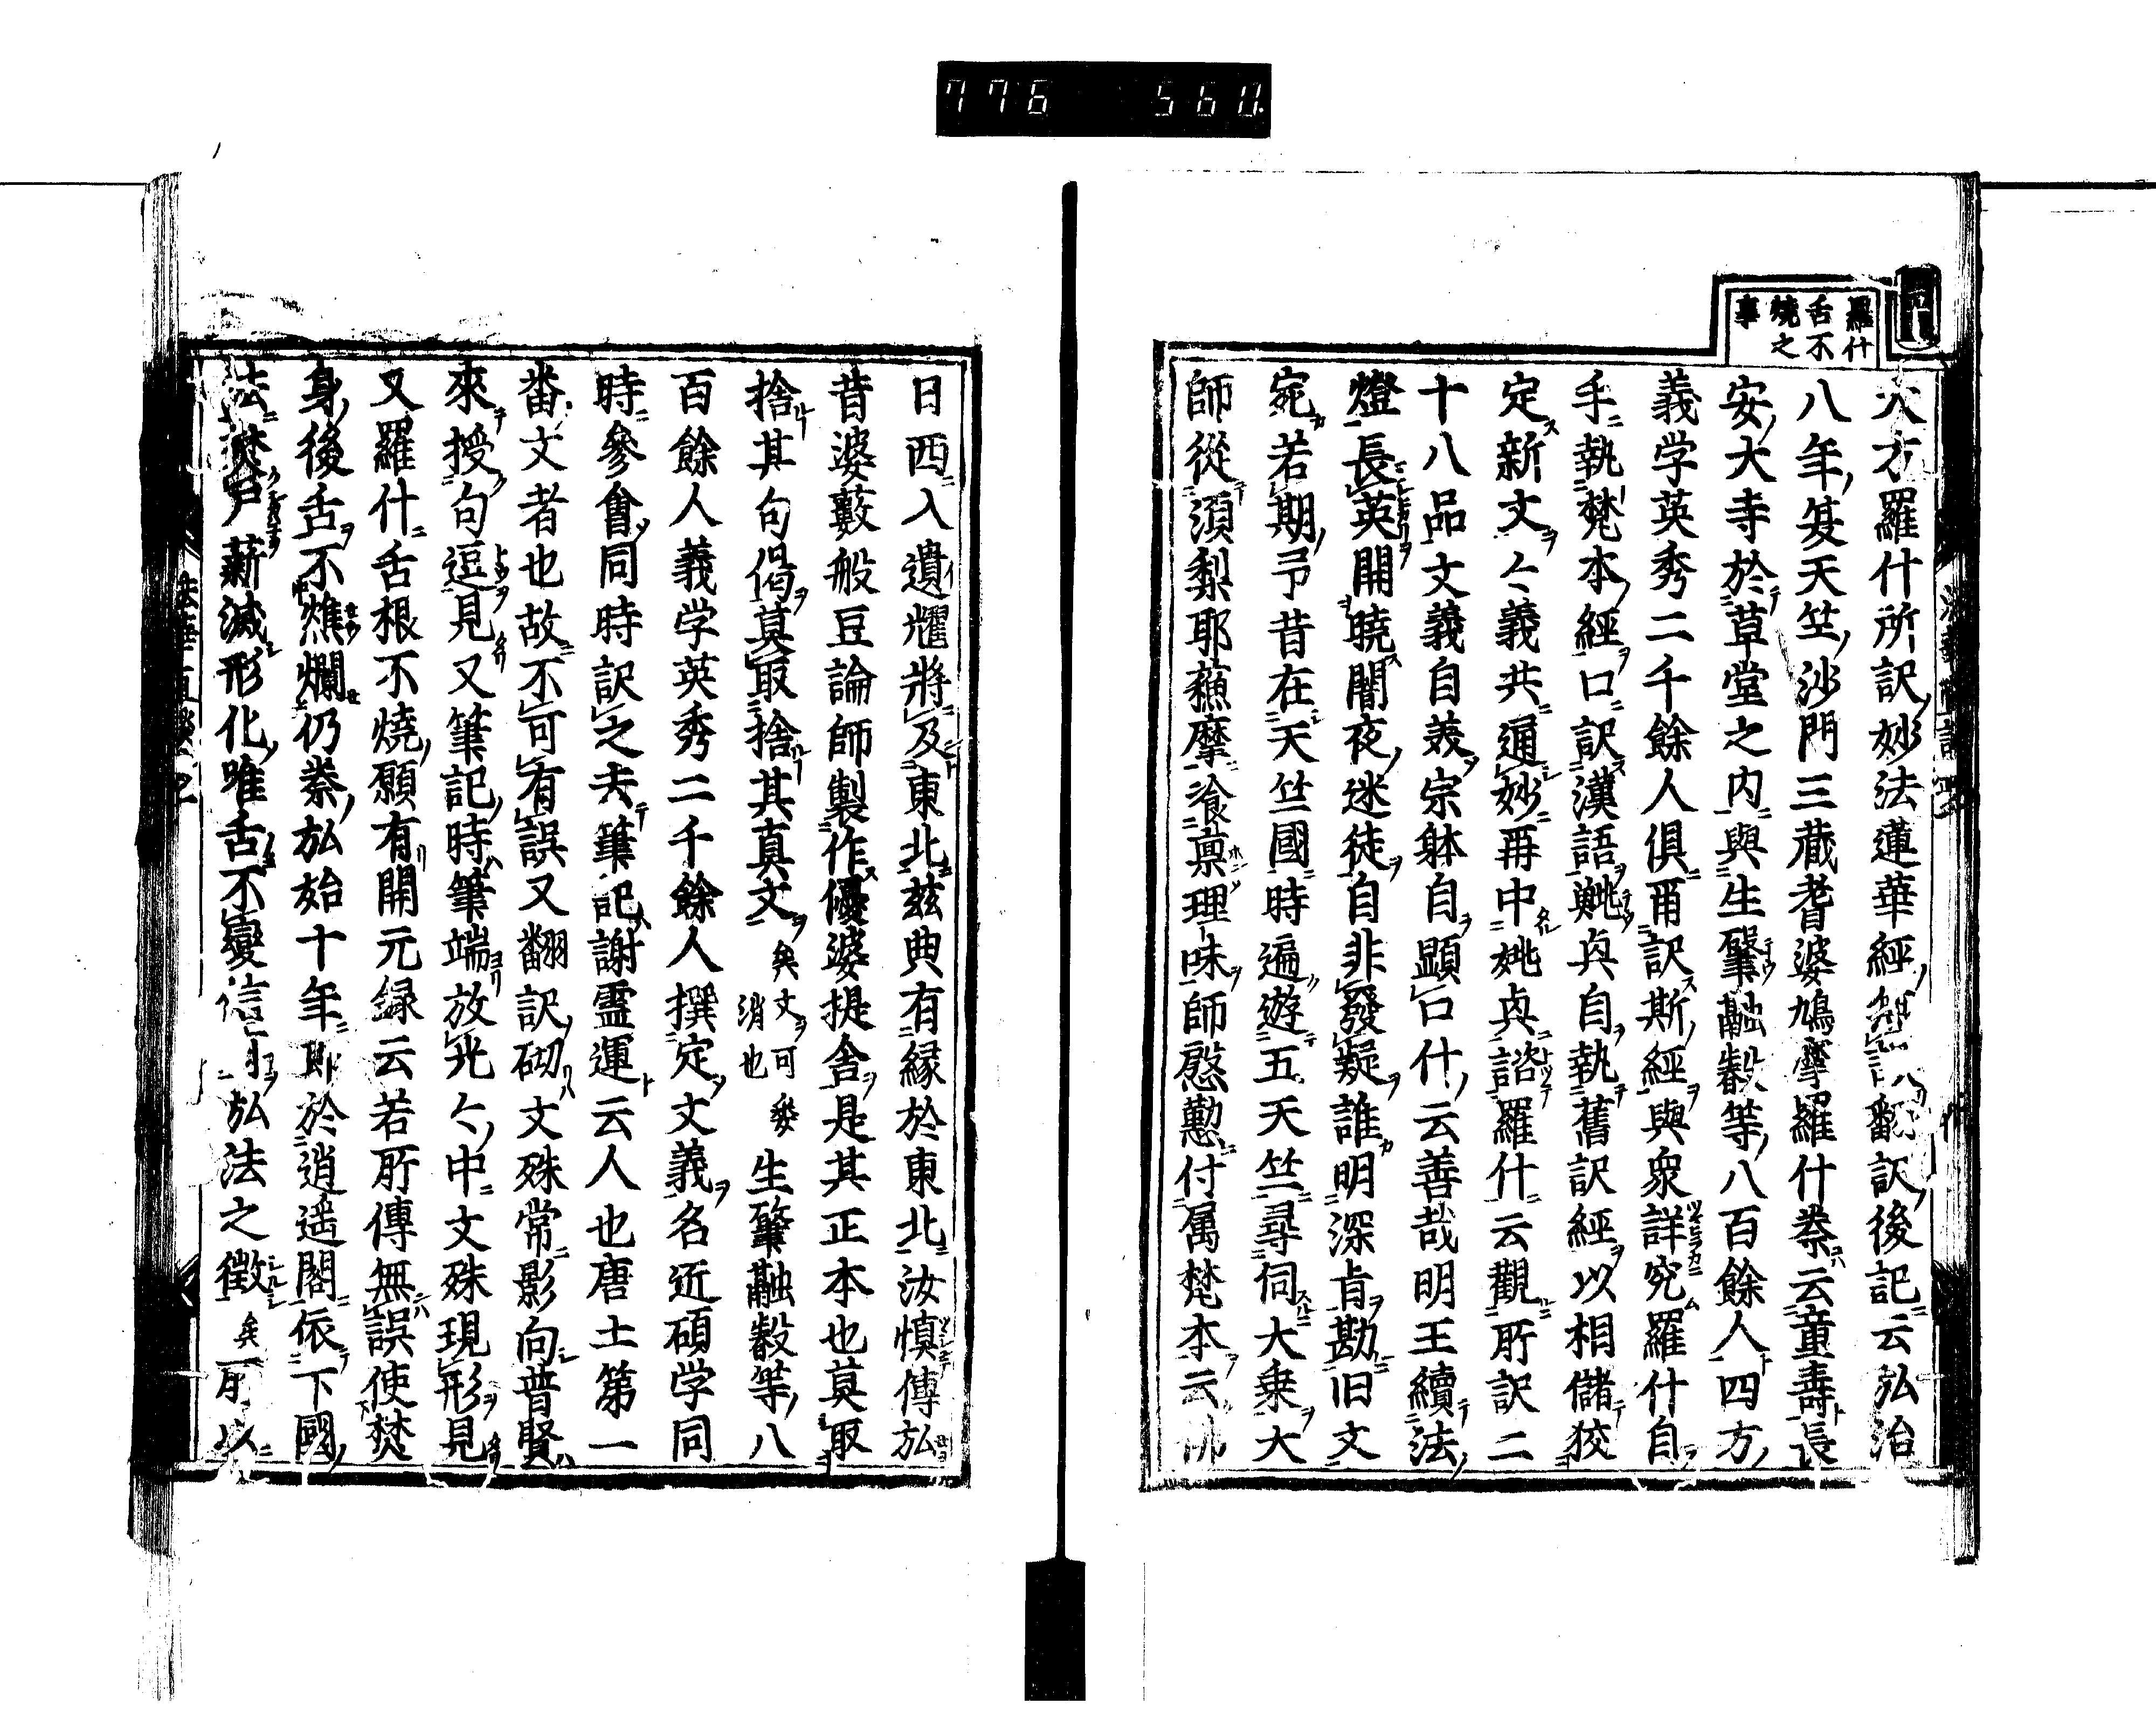 776 560.
羅什
舌不
燒之
事
大方羅什所訳妙法蓮華経翻訳後記云弘治
八年𥫫天竺沙門三蔵耆婆鳩摩羅什秦云童壽長
安大寺於草堂之内與生肇融叡等八百餘人四方
義学英秀二千餘人俱再訳斯経與衆詳究羅什自
手執梵本経口訳漢語姚興自執舊訳経以相儲挍
定新文々義共通妙再中姚興諮羅什云觀所訳二
十八品文義自義宗躰自顕口什云善哉明王續法
燈長英開曉闇夜迷徒自非發疑誰明深肯勘旧文
宛若期予昔在天竺國時遍遊五天竺尋伺大乗大
師從須梨耶蘓摩飡稟理味師慇懃付属梵本云佛
日西入遺耀將及東北玆典有縁於東北汝慎傳弘
昔婆藪般豆論師製作優婆提舎是其正本也莫取
捨其句偈莫取捨其真文矣文可消也 生肇融叡等八
百餘人義学英秀二千餘人撰定文義名近碩学同
時參會同時訳之夫筆記謝霊運云人也唐土第一
畨文者也故不可有誤又翻訳砌文殊常影向普賢
來授句逗見又筆記時筆端放光々中文殊現形見
又羅什舌根不燒願有開元録云若所傳無誤使焚
身後舌不燋爛仍秦弘始十年即於逍遥閣依下國
法焚尸薪滅形化唯舌不變信弘法之徴矣所以